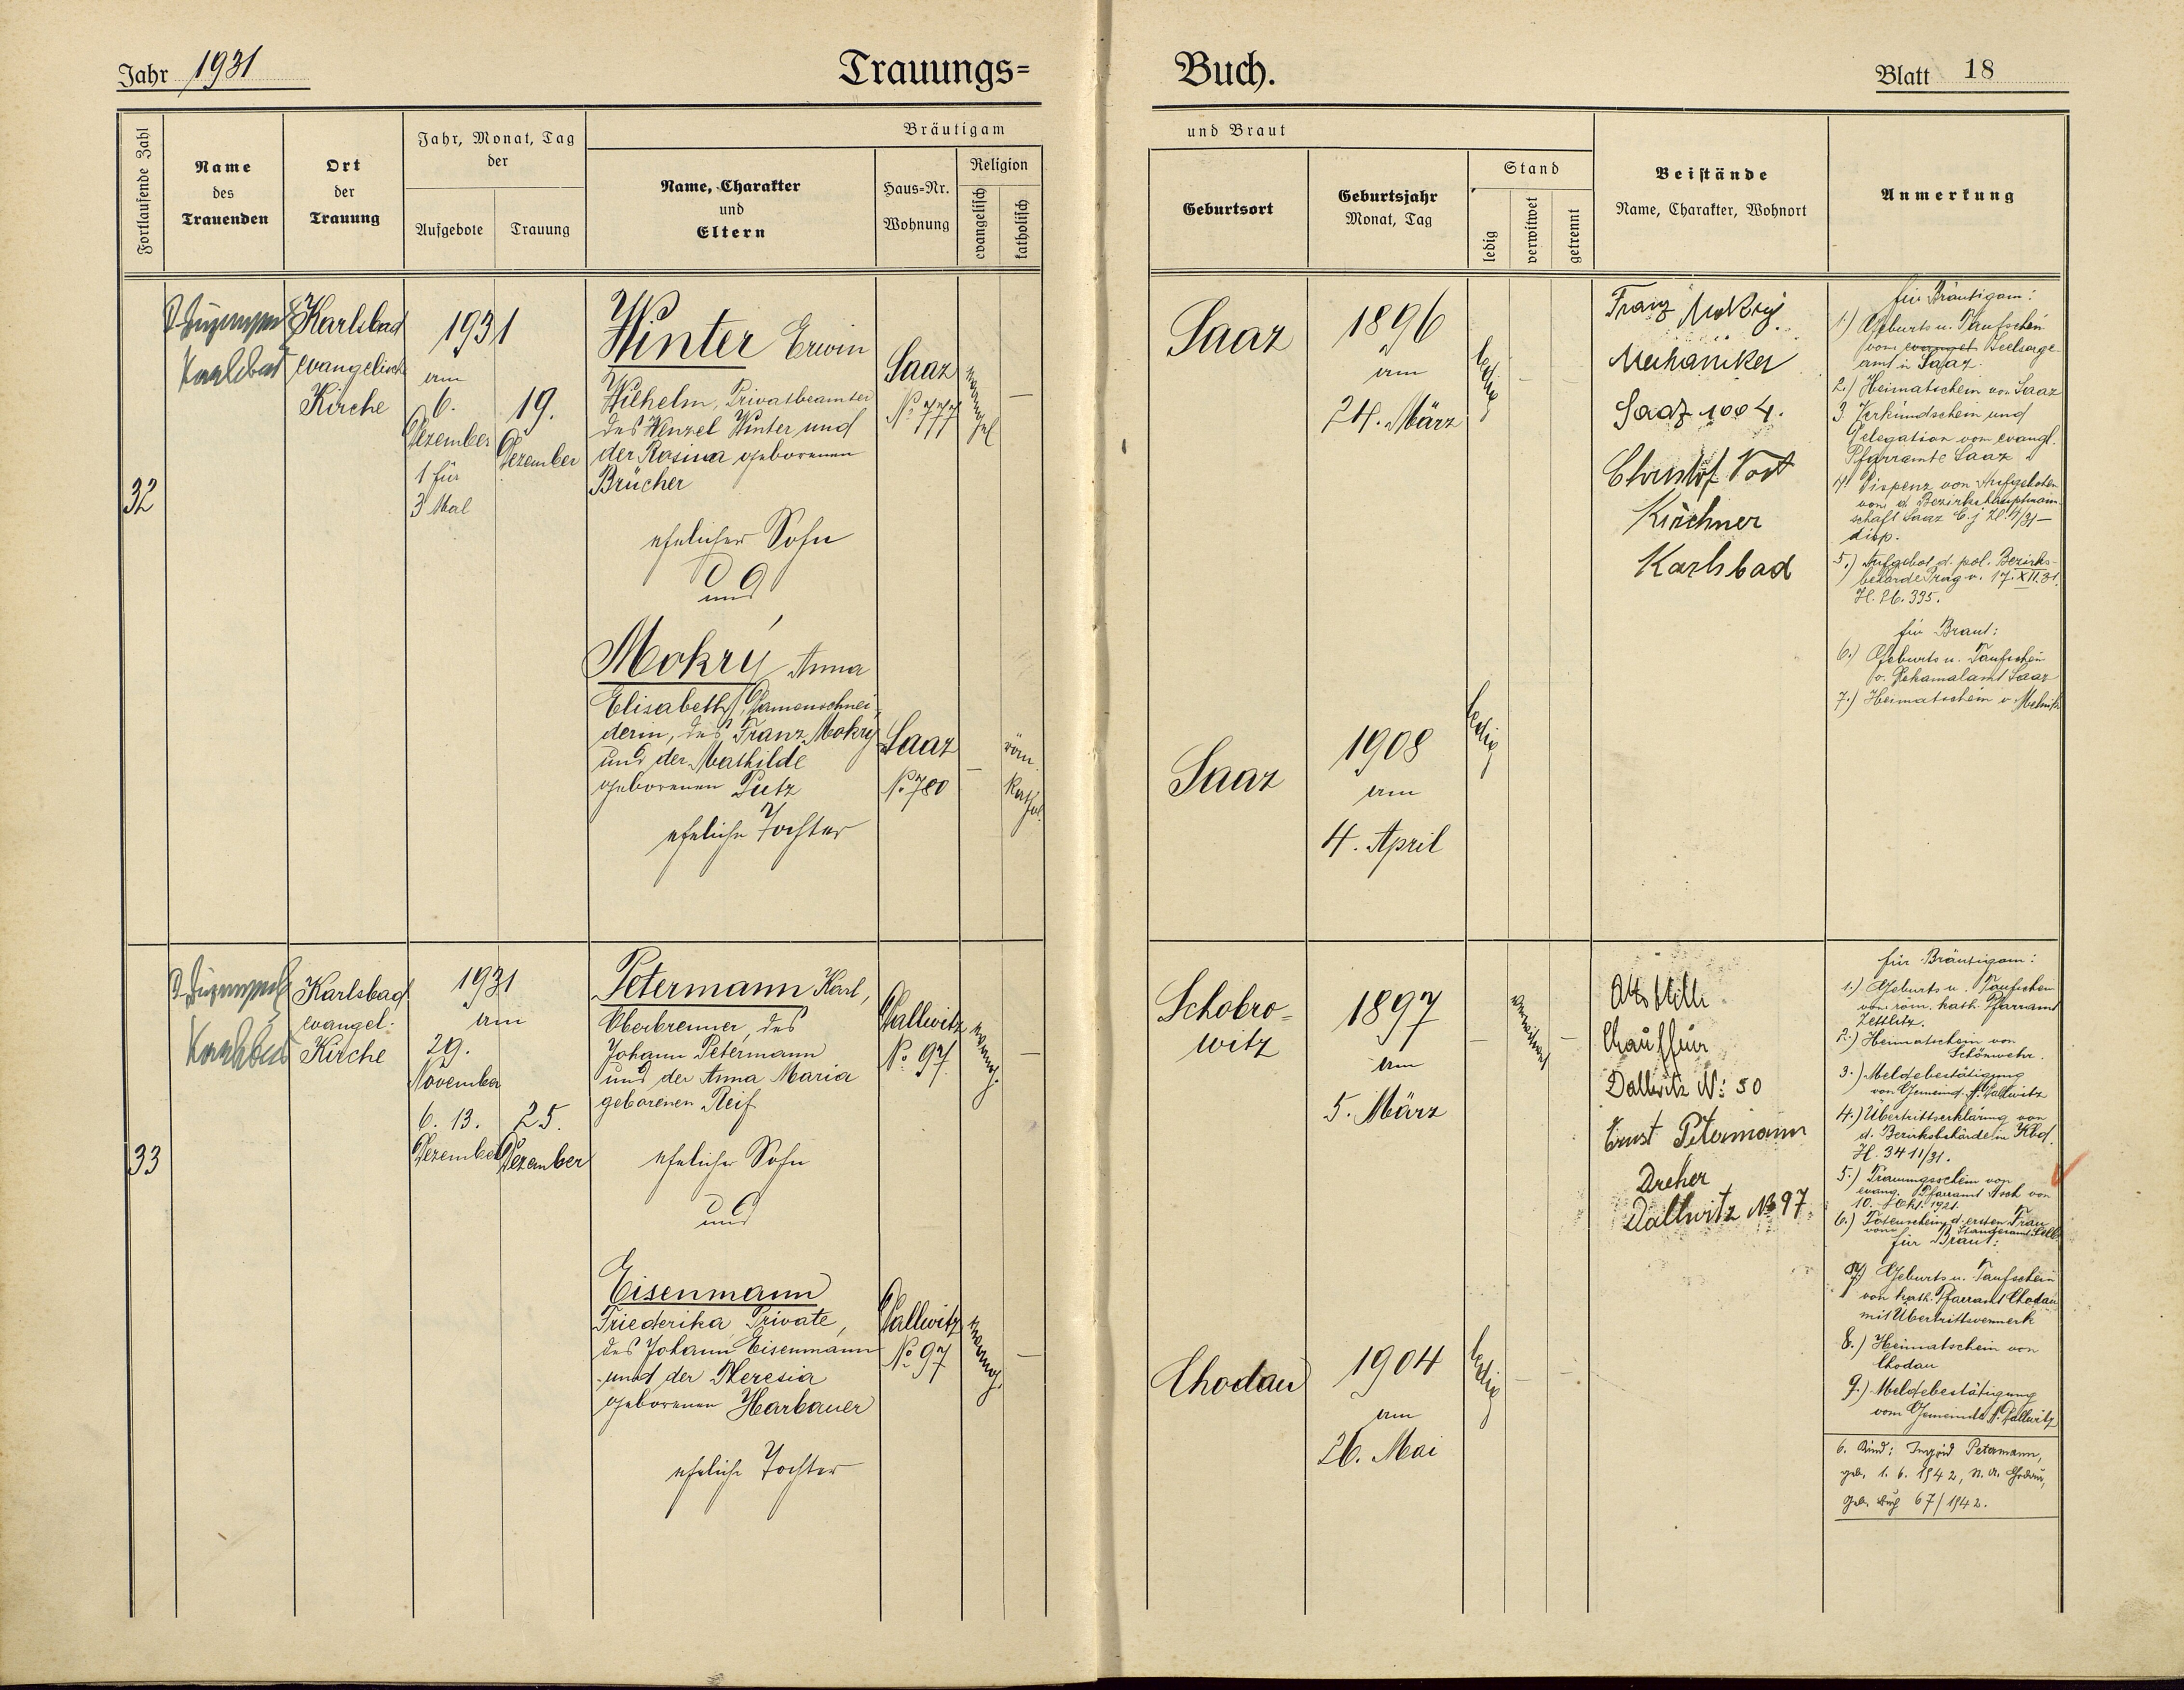 Jahr 1931
Trauungs=
Buch.
Blatt 18
Fortlaufende Zahl
Name
des
Trauenden
Ort
der
Trauung
Jahr, Monat, Tag
der
Aufgebote
Trauung
Bräutigam
Name, Charakter
und
Eltern
Haus=Nr.
Wohnung
Religion
evangelisch
katholisch
und Braut
Geburtsort
Geburtsjahr
Monat, Tag
Stand
ledig
verwitwet
getrennt
Beistände
Name, Charakter, Wohnort
Anmerkung
32
Karlsbad
Karlsbad
evangelische
Kirche
1931
am
6.
Dezember
1 für
3 Mal
19.
Dezember
Winter Erwin
Wilhelm, Privatbeamter
des Wenzel Winter und
der Rosina geborenen
Brücher
ehelicher Sohn
und
Saaz
No 777
evangel
—
Mokrý Anna
Elisabeth, Damenschnei-
derin, des Franz Mokry
und der Mathilde
geborenen Putz
eheliche Tochter
Saaz
No 780
—
röm.
kathol.
Saaz
1896
am
24. März
ledig
Saaz
1908
am
4. April
ledig
Franz Mokrý
Mechaniker
Saaz 1004.
Christof Vogt
Kirchner
Karlsbad
für Bräutigam:
1.) Geburts u. Taufschein
vom evangel. Seelsorge
amt in Saaz.
2.) Heimatschein von Saaz
3. Verkündschein und
Delegation vom evangl.
Pfarramte Saaz
4. Dispenz von Aufgeboten
von d. Bezirkshauptmann-
schaft Saaz C.j Zl. 4/31 —
disp.
5.) Aufgebot d. pol. Bezirks-
behörde Prag v. 17. XII. 31.
Zl. 26.335.
für Braut:
6.) Geburts u. Taufschein
v. Dekanalamt Saaz
7.) Heimatschein v. Melnik
33
Karlsbad
Karlsbad
evangel.
Kirche
1931
am
29.
November
6. 13.
Dezember
25.
Dezember
Petermann Karl,
Oberbrenner, des
Johann Petermann
und der Anna Maria
geborenen Reif
ehelicher Sohn
und
Dallwitz
No. 97
evang.
—
Eisenmann
Friederika Private,
des Johann Eisenmann
und der Theresia
geborenen Harbauer
eheliche Tochter
Dallwitz
No. 97
evang.
—
Schobro=
witz
1897
am
5. März
—
verwitwet
—
Chodau
1904
am
26. Mai
ledig
—
—
Otto
Chauffeur
Dallwitz No: 50
Ernst Petermann
Dreher
Dallwitz No 97.
für Bräutigam:
1.) Geburts u. Taufschein
vom röm. kath. Pfarramt
Zettlitz.
2.) Heimatschein von
Schönwehr.
3.) Meldebestätigung
von Gemeind. A. Dallwitz
4.) Übertrittserklärung von
d. Bezirksbehörde in Kbd.
Zl. 3411/31.
5.) Trauungsschein von
evang. Pfarramt Asch von
10. Okt. 1921.
6.) Totenschein d. ersten Frau
vom Standesamt Selb
für Braut:
7.) Geburts u. Taufschein
von kath. Pfarramt Chodau
mit Übertrittsvermerk
8.) Heimatschein von
Chodau
9.) Meldebestätigung
vom Gemeinde A. Dallwitz
6. Kind: Ingrid Petermann,
geb. 1. 6. 1942, St. A. Chodau,
Geb. Buch 67/1942.